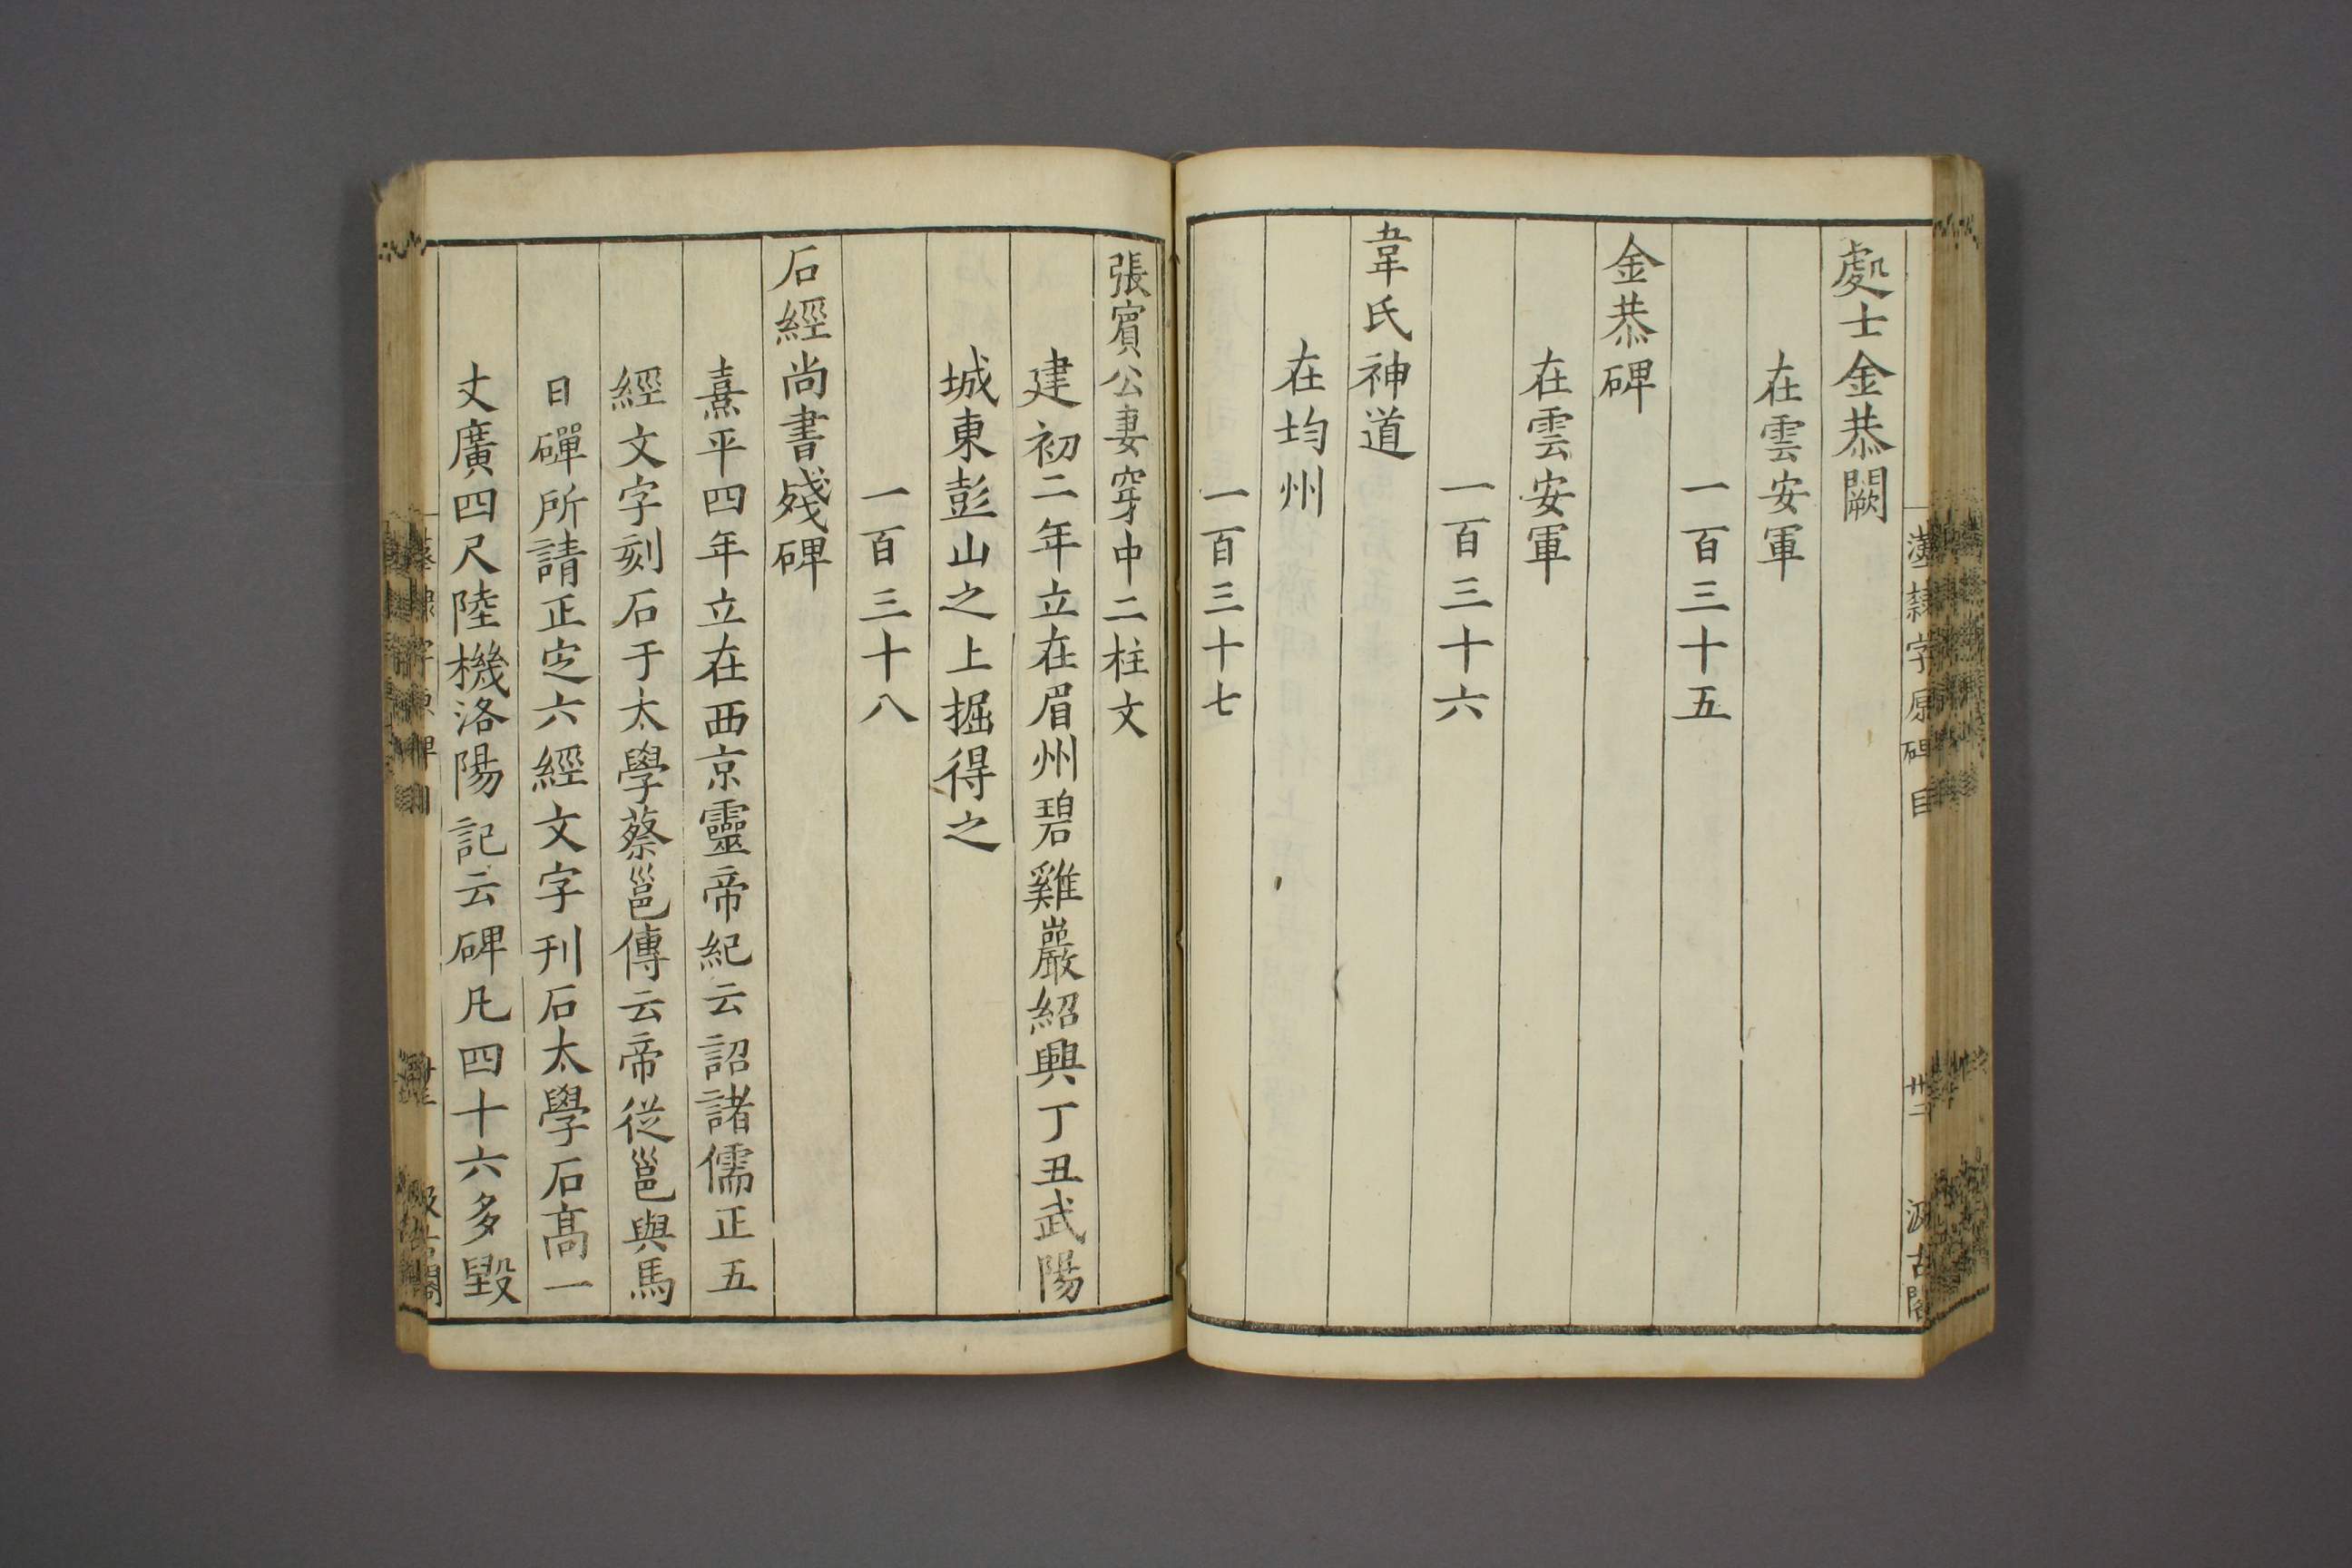 處士金恭闕
在雲安軍
一百三十五
金恭碑
在雲安軍
一百三十六
韋氏神道
在均州
一百三十七
張賓公妻穿中二柱文
建初二年立在眉州碧雞巖紹興丁丑武陽
城東彭山之上掘得之
一百三十八
石經尚書殘碑
熹平四年立在西京靈帝紀云詔諸儒正五
經文字刻石于太學蔡邕傳云帝從邕與馬
日磾所請正定六經文字刊石太學石高一
丈廣四尺陸機洛陽記云碑凡四十六多毀
漢隸字原碑目
汲古閣